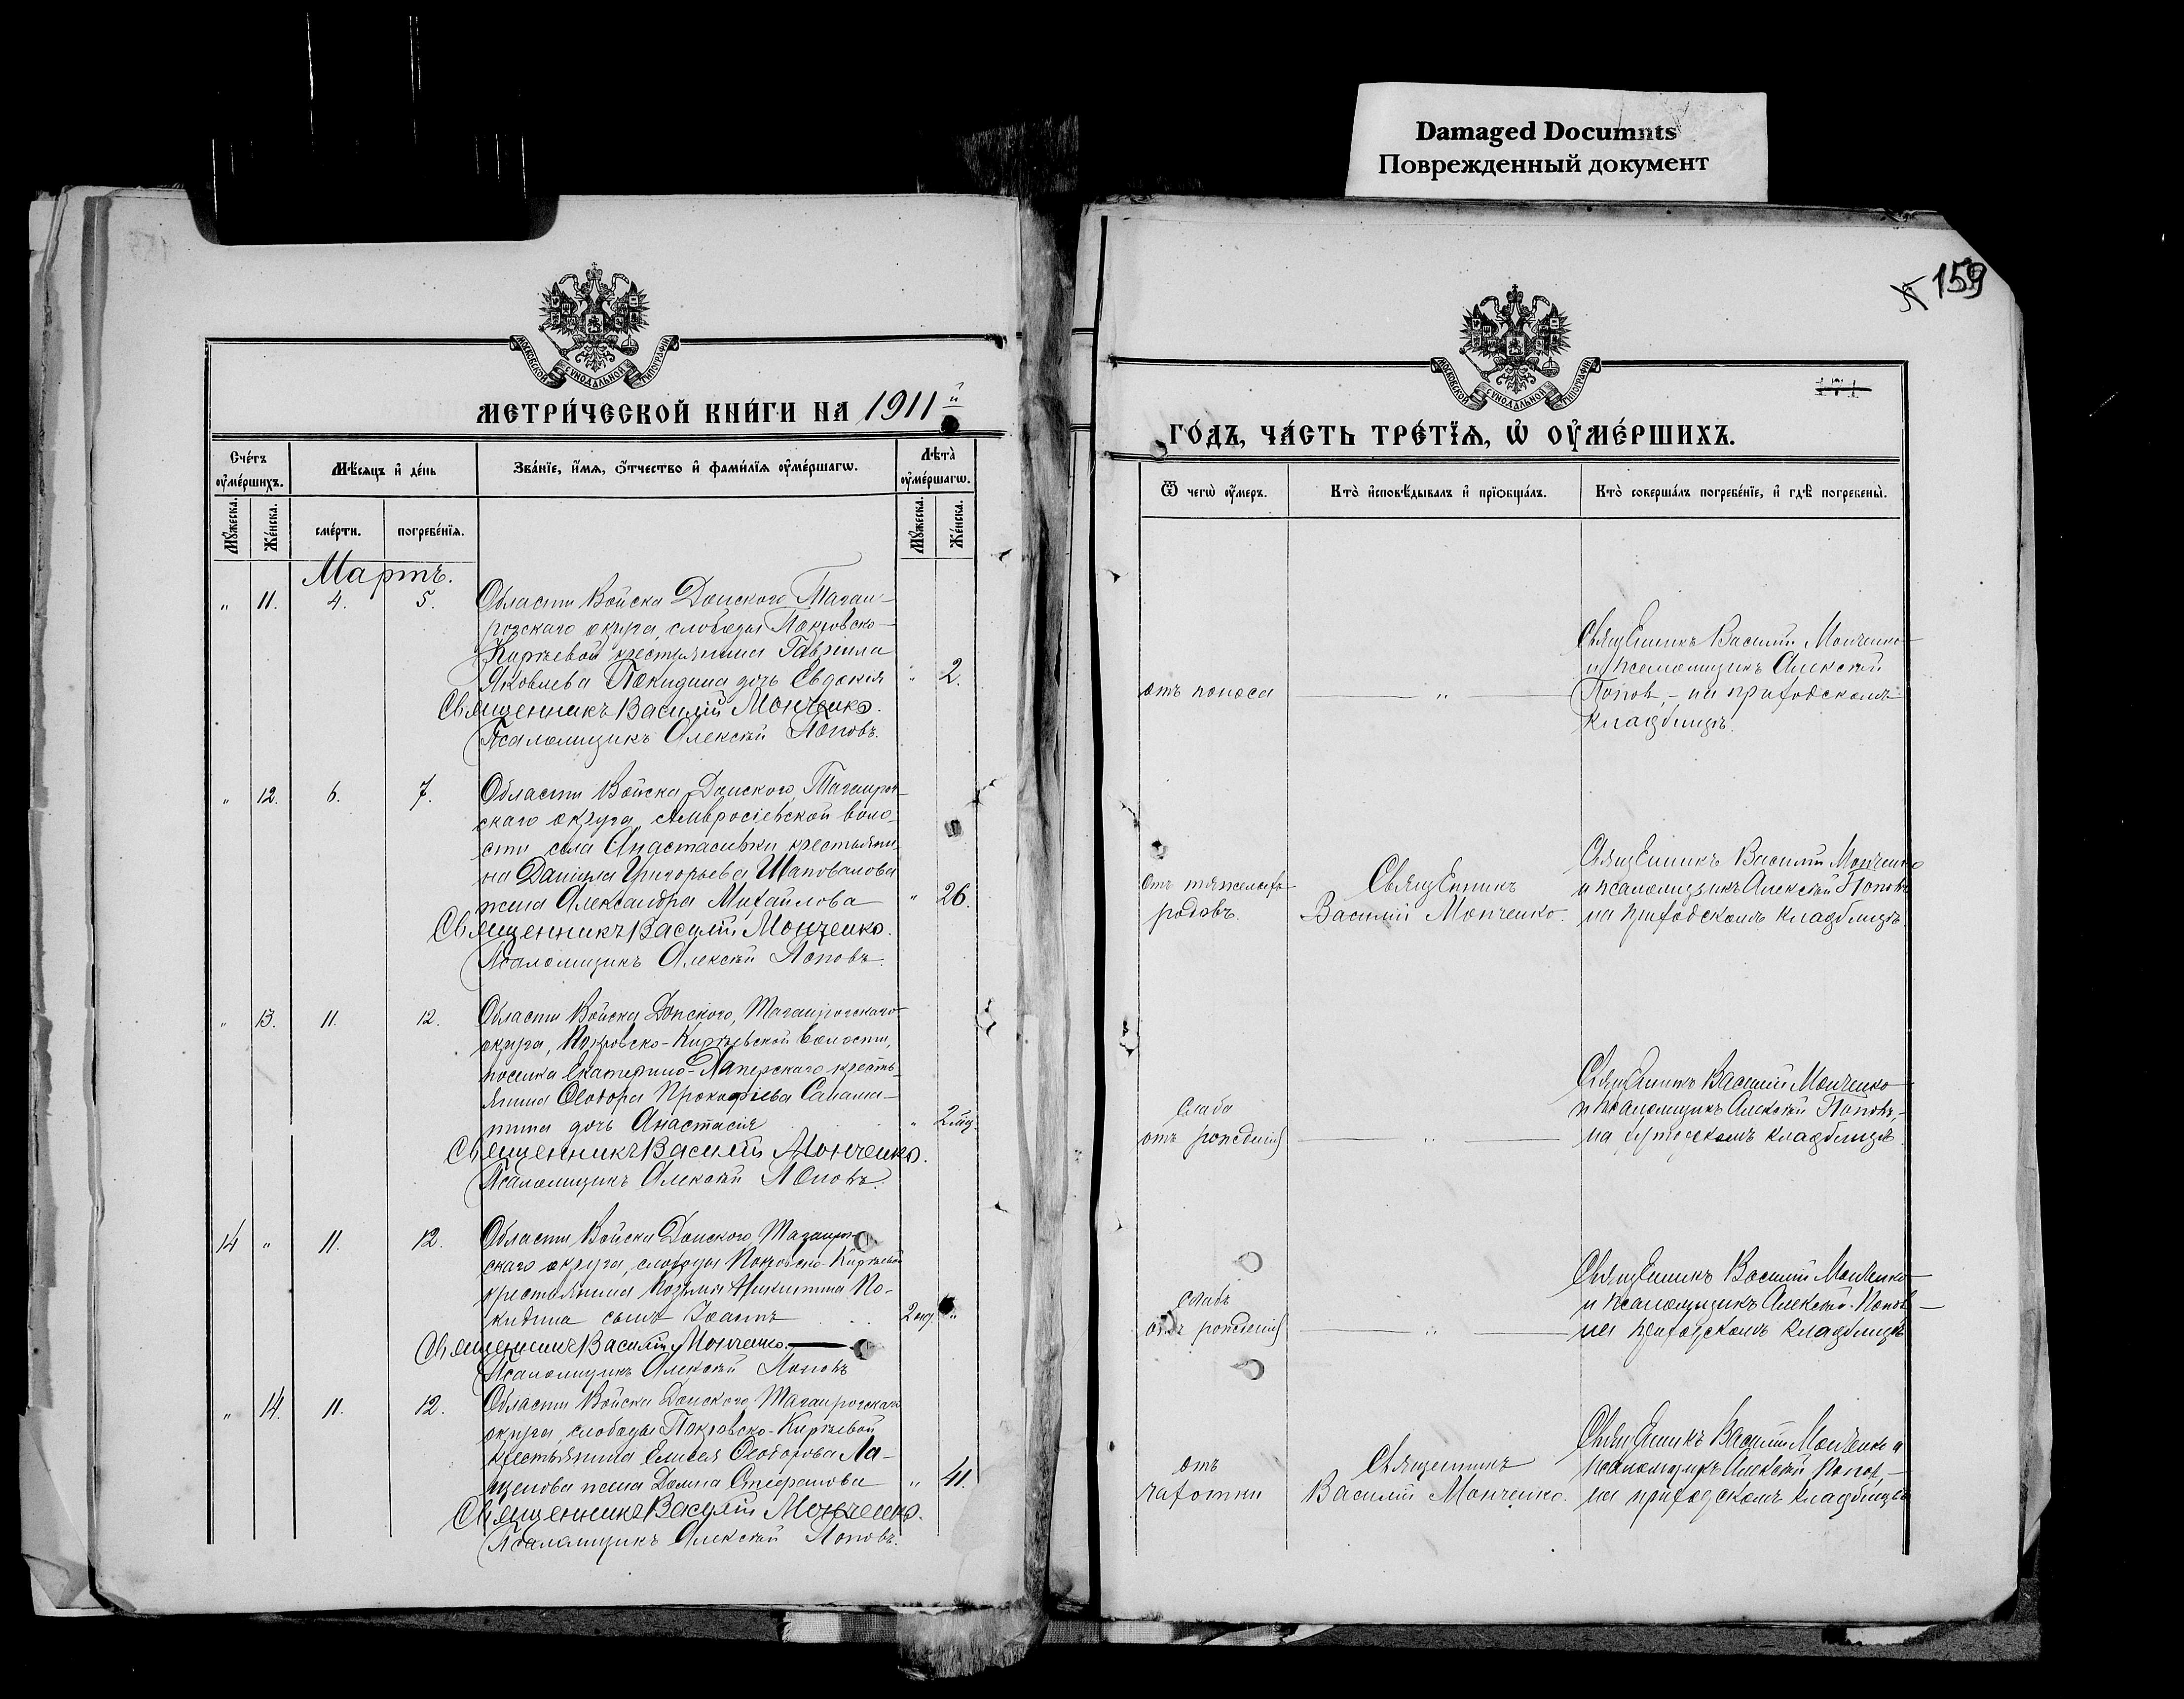 Damaged Documnts
Поврежденный документ
159
МОСКОВСКОЙ СѴНОДАЛЬНОЙ ТИПОГРАФІИ
МЕТРИ́ЧЕСКОЙ КНИ́ГИ НА 1911й
Сче́тъ ᲂу҆ме́ршихъ.
Мѣ́сяцъ и҆ де́нь
Зва́нїе, и҆́мѧ, ѻ҆́тчество и҆ фами́лїѧ ᲂу҆ме́ршагѡ.
Лѣ́та ᲂу҆ме́ршагѡ.
Мꙋ́жеска.
Же́нска.
сме́рти.
погребе́нїѧ.
Мꙋ́жеска.
Же́нска.
Мартъ.
" 11. 4. 5. Области Войска Донского, Таган-
рогскаго округа, слободы Покровско-
Киреевой крестьянина Гавріила
Яковлева Покидина дочь Евдокія " 2.
Священникъ Василій Монченко.
Псаломщикъ Алексѣй Поповъ.
" 12. 6. 7. Области Войска Донского, Таганрог-
скаго округа, Амвросіевской воло-
сти села Анастасіевки крестьяни-
на Даніила Григорьева Шаповалова
жена Александра Михайлова " 26.
Священникъ Василій Монченко.
Псаломщикъ Алексѣй Поповъ.
" 13. 11. 12. Области Войска Донского, Таганрогскаго
округа, Покровско-Киреевской волости,
поселка Екатерино-Хаперскаго кресть-
янина Ѳеодора Прокофіева
дочь Анастасія " 2 нед.
Священникъ Василій Монченко.
Псаломщикъ Алексѣй Поповъ.
14 " 11. 12. Области Войска Донского, Таганрог-
скаго округа, слободы Покровско-Киреевой
крестьянина Козьмы Никитина По-
кидина сынъ Іоаннъ 2 нед. "
Священникъ Василій Монченко.
Псаломщикъ Алексѣй Поповъ
" 14. 11. 12. Области Войска Донского, Таганрогскаго
округа, слободы Покровско-Киреевой
крестьянина Елисея Ѳеодорова Ла-
щенова жена Домна Стефанова " 41.
Священникъ Василій Монченко.
Псаломщикъ Алексѣй Поповъ.
МОСКОВСКОЙ СѴНОДАЛЬНОЙ ТИПОГРАФІИ
171
ГО́ДЪ, ЧА́СТЬ ТРЕ́ТЇѦ, Ѡ҆ ОУ҆МЕ́РШИХЪ.
Ѿ чегѡ̀ ᲂу҆́меръ.
Кто̀ и҆сповѣ́дывалъ и҆ прїѻбща́лъ.
Кто̀ соверша́лъ погребе́нїе, и҆ гдѣ̀ погребены̀.
отъ поноса
"
Священникъ Василій Монченко
и псаломщикъ Алексѣй
Поповъ, - на приходскомъ
кладбищѣ.
отъ тяжелыхъ
родовъ.
Священникъ
Василій Монченко.
Священникъ Василій Монченко
и псаломщикъ Алексѣй Поповъ
на приходскомъ кладбищѣ.
Слаба
отъ рожденія
"
Священникъ Василій Монченко
и псаломщикъ Алексѣй Поповъ, -
на приходскомъ кладбищѣ.
слабъ
отъ рожденія
"
Священникъ Василій Монченко
и псаломщикъ Алексѣй Поповъ -
на приходскомъ кладбищѣ
отъ
чахотки
Священникъ
Василій Монченко.
Священникъ Василій Монченко и
псаломщикъ Алексѣй Поповъ, -
на приходскомъ кладбищѣ